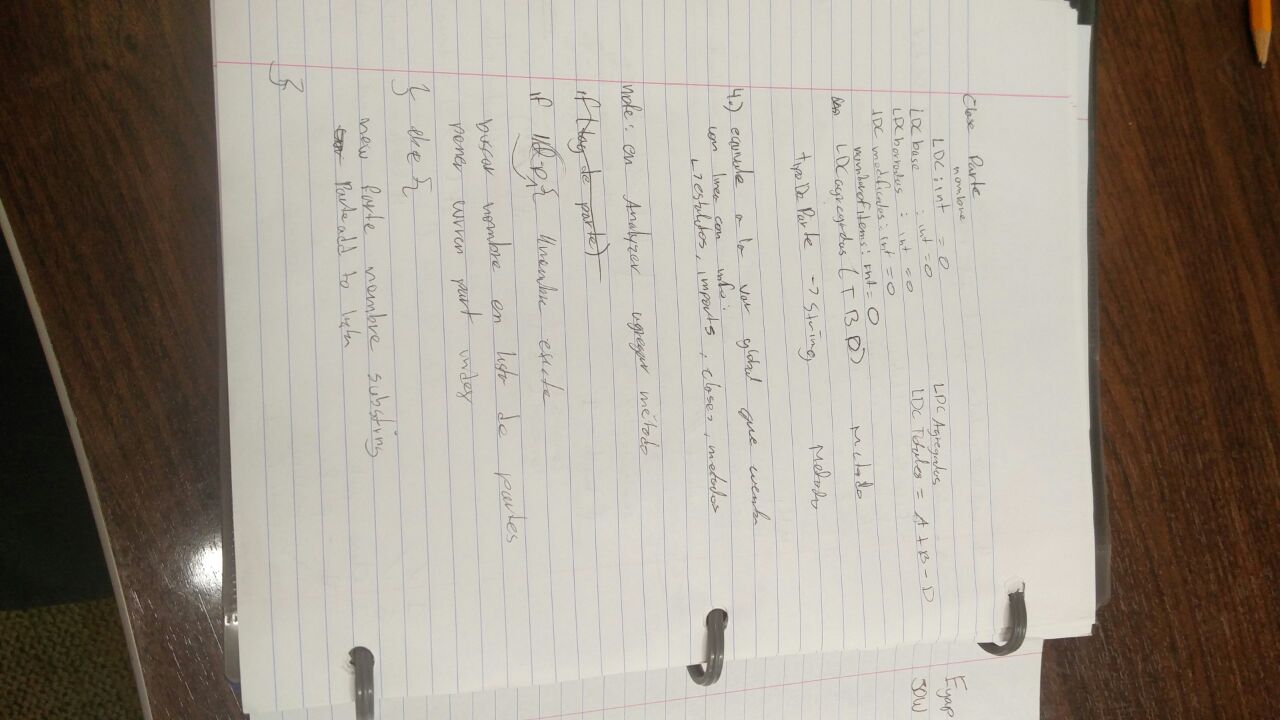 Clase Parte
nombre
LDC: int = 0
LDC base : int = 0
LDC borrados : int = 0
LDC modificados: int = 0
number of items: int = 0
LDC agregadas (TBD)
LDC Agregadas
LDC Totales = A + B - D
Metodo
tipo De Parte -> String Metodo
4.) equivale a la var global que cuenta
una linea con info:
↳ estables, imports, clases, metodos
note: en Analyzer agregar método
if (tag de parte)
if //&p{ //nombre existe
buscar nombre en lista de partes
poner current part index
} else {
new Parte nombre substring
Parte add to lista
}
Eyap
30W